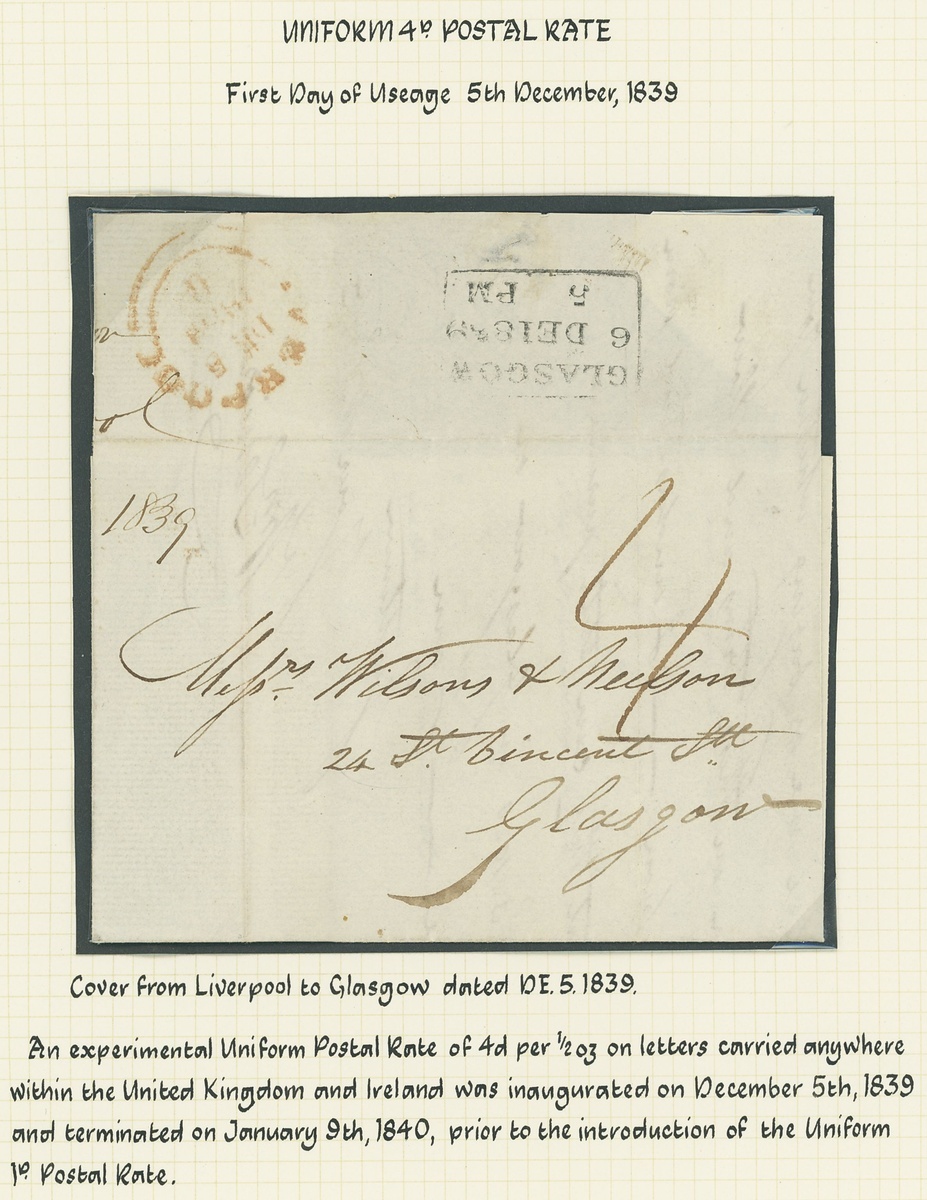 UNIFORM 4D POSTAL RATE
First Day of Useage 5th December, 1839
5 PM
6 DE 1839
GLASGOW
ol
1839
4
Messrs Wilsons & Neilson
24 St. Vincent Stt
Glasgow
Cover from Liverpool to Glasgow dated DE. 5. 1839.
An experimental Uniform Postal Rate of 4d per ½ oz on letters carried anywhere
within the United Kingdom and Ireland was inaugurated on December 5th, 1839
and terminated on January 9th, 1840, prior to the introduction of the Uniform
1D Postal Rate.